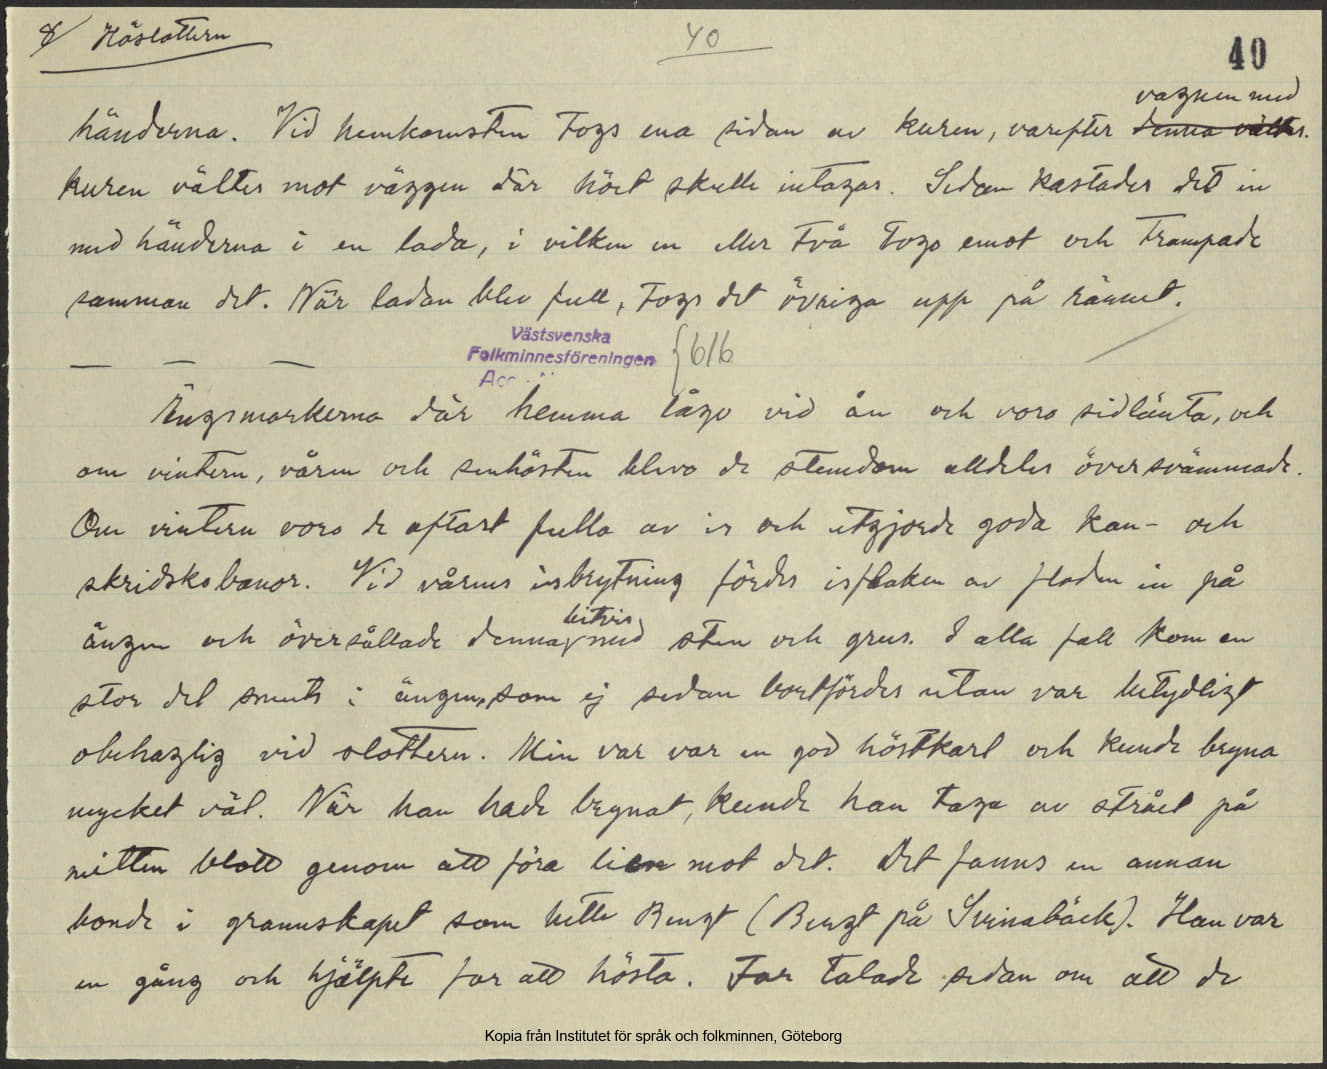 8/ Höslottern
40
40
vagnen med
händerna. Vid hemkomsten togs ena sidan av kuren, varefter denna väldes.
kuren vältes mot väggen där höet skulle intagas. Sedan kastades det in
med händerna i en lada, i vilken en eller två togo emot och trampade
samman det. När ladan blev full, togs det övriga upp på rännet.
Västsvenska
Folkminnesföreningen
Acc
616
Ängsmarkerna där hemma lågo vid ån och voro sidlänta, och
om vintern, våren och senhösten blevo de stundom alldeles översvämmade.
Om vintern voro de oftast fulla av is och utgjorde goda kan- och
skridskobanor. Vid vårens isbrytning fördes isflaken av floden in på
bitvis
ängen och översållade denna med sten och grus. I alla fall kom en
stor del smuts i ängen, som ej sedan bortfördes utan var betydligt
obehaglig vid slottern. Min var var en god höstkarl och kunde bryna
mycket väl. När han hade brynat, kunde han taga av strået på
mitten blott genom att föra lien mot det. Det fanns en annan
bonde i grannskapet som hette Bengt (Bengt på Svinabäck). Han var
en gång och hjälpte far att hösta. Far talade sedan om att de
Kopia från Institutet för språk och folkminnen, Göteborg